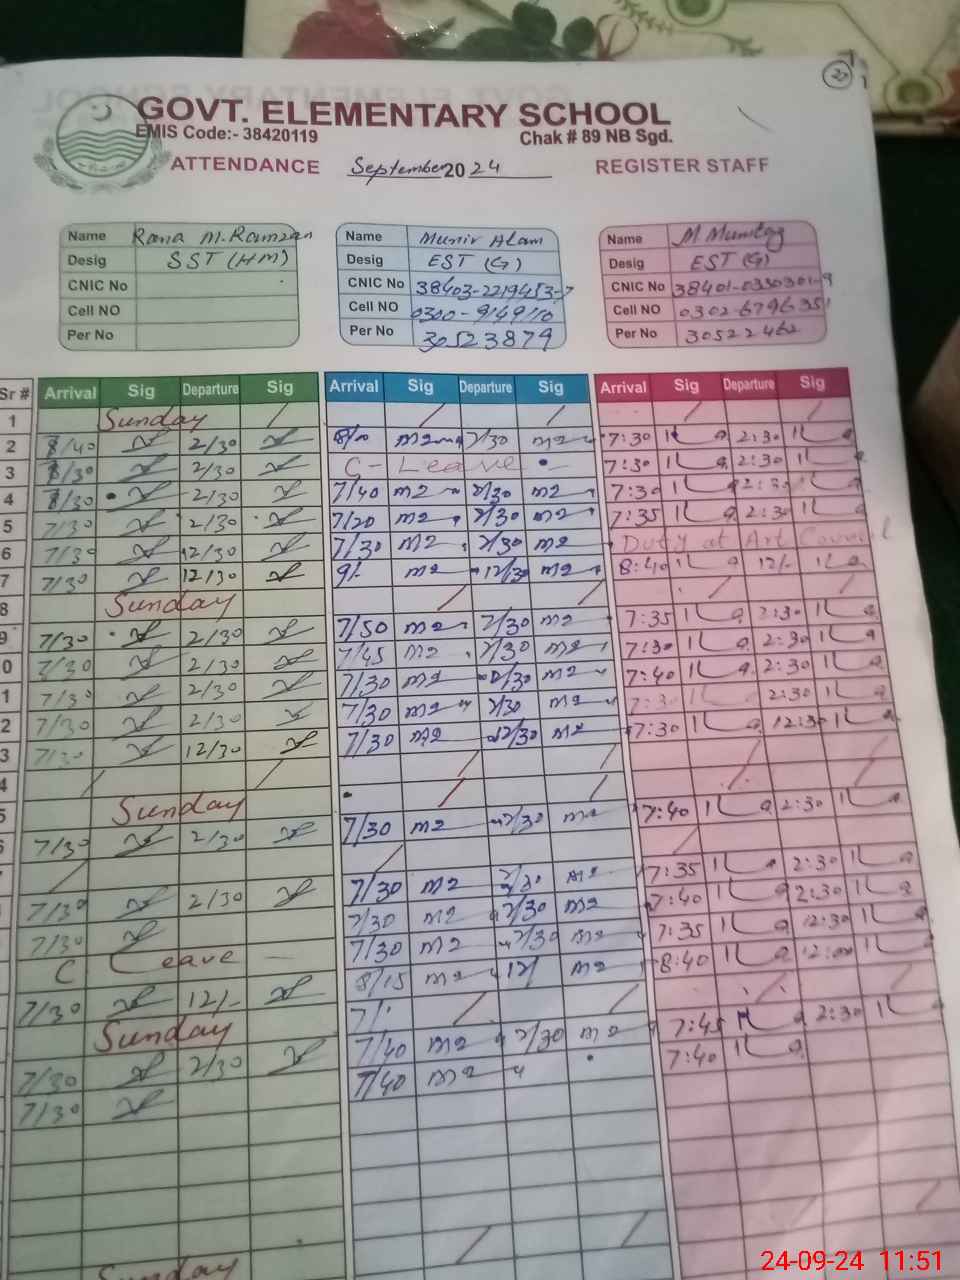 GOVT. ELEMENTARY SCHOOL
EMIS Code:- 38420119 Chak # 89 NB Sgd.
ATTENDANCE September 2024 REGISTER STAFF
Name Rana M. Ramzan Name Munir Alam Name M Mumtaz
Desig SST (HM) Desig EST (G) Desig EST (G)
CNIC No CNIC No 38403-2219453-7 CNIC No
Cell NO Cell NO 0300-9149110 Cell NO 0302-6796351
Per No Per No 30523879 Per No 30522462
Sr # Arrival Sig Departure Sig Arrival Sig Departure Sig Arrival Sig Departure Sig
1 Sunday
2 8/40 2/30 2/30 7:30 2:30
3 8/30 2/30 C- Leave 7:30 2:30
4 8/30 2/30 7/40 2/30 7:30 2:30
5 7/30 2/30 7/20 2/30 7:35 2:30
6 7/30 12/30 7/30 2/30 Duty at Art Council
7 7/30 12/30 9/- 12/30 8:40 12/-
8 Sunday
9 7/30 2/30 7/50 2/30 7:35 2:30
0 7/30 2/30 7/45 2/30 7:30 2:30
1 7/30 2/30 7/30 2/30 7:40 2:30
2 7/30 2/30 7/30 2/30 7:30 2:30
3 7/30 12/30 7/30 12/30 7:30 12:30
4
5 Sunday
7/30 2/30 7/30 2/30 7:40 2:30
7/30 2/30 7/30 2/30 7:35 2:30
7/30 7/30 2/30 7:40 2:30
C Leave 7/30 2/30 7:35 12:30
7/30 12/- 8/15 12/ 8:40 12:00
Sunday
7/30 2/30 7/40 2/30 7:45 2:30
7/30 7/40 7:40
Sunday
24-09-24 11:51